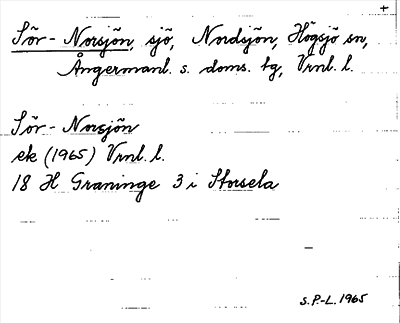 +
Sör-Norsjön, sjö, Nordsjön, Högsjö sn,
Ångermanl. s. doms. tg, Vrnl. l.
Sör-Norsjön
ek (1965) Vrnl. l.
18 H Graninge 3 i Storsela
S.P.-L. 1965